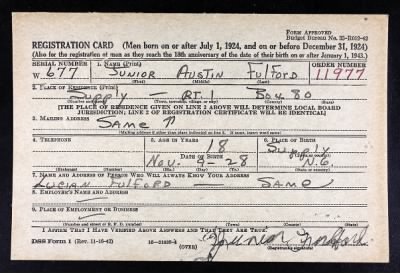 FORM APPROVED
Budget Bureau No. 33-R012-42
REGISTRATION CARD (Men born on or after July 1, 1924, and on or before December 31, 1924)
(Also for the registration of men as they reach the 18th anniversary of the date of their birth on or after January 1, 1943.)
SERIAL NUMBER 1. NAME (Print) ORDER NUMBER
W. 677 JUNIOR AUSTIN FULFORD 11977
(First) (Middle) (Last)
2. PLACE OF RESIDENCE (Print)
SUPPLY — RT. 1 BOX 80
(Number and street) (Town, township, village, or city) (County) (State)
[THE PLACE OF RESIDENCE GIVEN ON LINE 2 ABOVE WILL DETERMINE LOCAL BOARD
JURISDICTION; LINE 2 OF REGISTRATION CERTIFICATE WILL BE IDENTICAL]
3. MAILING ADDRESS
SAME
[Mailing address if other than place indicated on line 2. If same, insert word same]
4. TELEPHONE 5. AGE IN YEARS 6. PLACE OF BIRTH
18 SUPPLY
DATE OF BIRTH
NOV. 9-28 N.C.
(Exchange) (Number) (Mo.) (Day) (Yr.) (State or country)
7. NAME AND ADDRESS OF PERSON WHO WILL ALWAYS KNOW YOUR ADDRESS
LUCIAN FULFORD — SAME
8. EMPLOYER'S NAME AND ADDRESS
9. PLACE OF EMPLOYMENT OR BUSINESS
(Number and street or R. F. D. number) (Town) (County) (State)
I AFFIRM THAT I HAVE VERIFIED ABOVE ANSWERS AND THAT THEY ARE TRUE.
DSS Form 1 (Rev. 11-16-42) (OVER) Junior
(Registrant's signature)